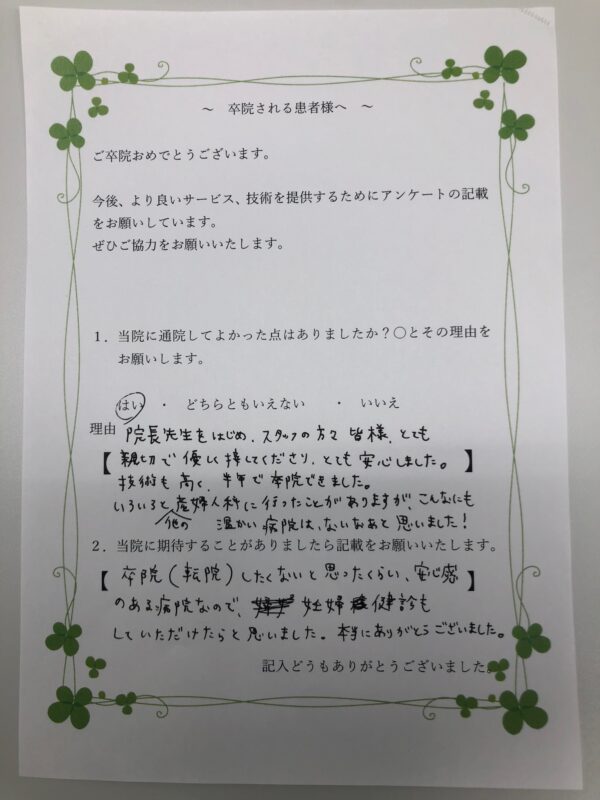 ～　卒院される患者様へ　～
ご卒院おめでとうございます。
今後、より良いサービス、技術を提供するためにアンケートの記載
をお願いしています。
ぜひご協力をお願いいたします。
１．当院に通院してよかった点はありましたか？〇とその理由を
お願いします。
はい　・　どちらともいえない　・　いいえ
理由 院長先生をはじめ、スタッフの方々皆様、とても
【親切で優しく接してくださり、とても安心しました。】
技術も高く、半年で卒院できました。
いろいろと他の産婦人科に行ったことがありますが、こんなにも
温かい病院は、ないなあと思いました！
２．当院に期待することがありましたら記載をお願いいたします。
【卒院（転院）したくないと思ったくらい、安心感】
のある病院なので、妊婦健診も
していただけたらと思いました。本当にありがとうございました。
記入どうもありがとうございました。